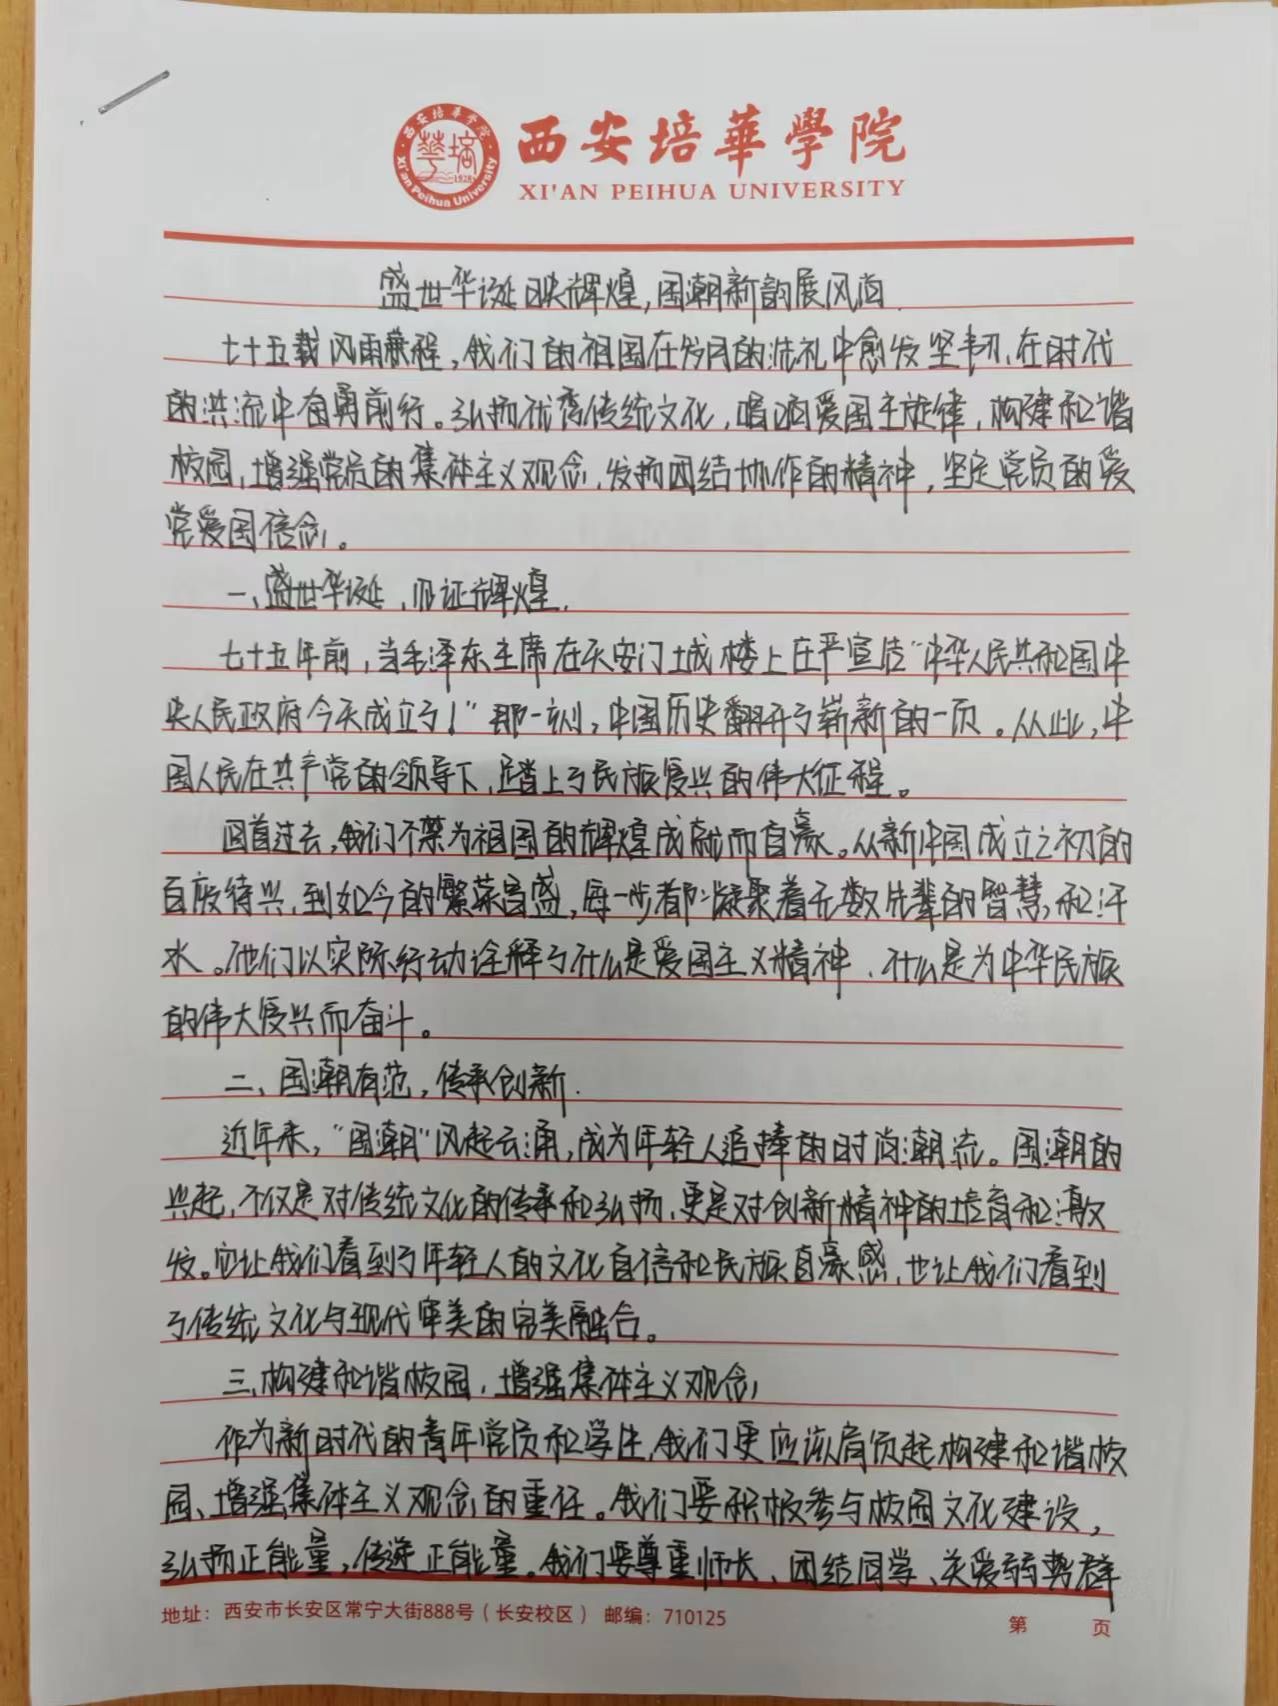 西安培華學院
XI'AN PEIHUA UNIVERSITY
西安培华学院
华培
1928
Xi'an Peihua University
盛世华诞映辉煌,国潮新韵展风尚.
七十五载风雨兼程,我们的祖国在岁月的洗礼中愈发坚韧、在时代
的洪流中奋勇前行。弘扬优秀传统文化,唱响爱国主旋律,构建和谐
校园,增强党员的集体主义观念、发扬团结协作的精神,坚定党员的爱
党爱国信念。
一、盛世华诞,见证辉煌.
七十五年前,当毛泽东主席在天安门城楼上庄严宣告"中华人民共和国中
央人民政府今天成立了!"那一刻,中国历史翻开了崭新的一页。从此,中
国人民在共产党的领导下,踏上了民族复兴的伟大征程。
回首过去,我们不禁为祖国的辉煌成就而自豪。从新中国成立之初的
百废待兴,到如今的繁荣昌盛,每一步都凝聚着无数先辈的智慧和汗
水。他们以实际行动诠释了什么是爱国主义精神、什么是为中华民族
的伟大复兴而奋斗。
二、国潮有范,传承创新.
近年来,"国潮"风起云涌,成为年轻人追捧的时尚潮流。国潮的
兴起,不仅是对传统文化的传承和弘扬,更是对创新精神的培育和激
发。它让我们看到了年轻人的文化自信和民族自豪感,也让我们看到
了传统文化与现代审美的完美融合。
三、构建和谐校园,增强集体主义观念
作为新时代的青年党员和学生,我们更应该肩负起构建和谐校
园、增强集体主义观念的重任。我们要积极参与校园文化建设,
弘扬正能量,传递正能量。我们要尊重师长、团结同学、关爱弱势群
地址:西安市长安区常宁大街888号(长安校区) 邮编:710125
第 页